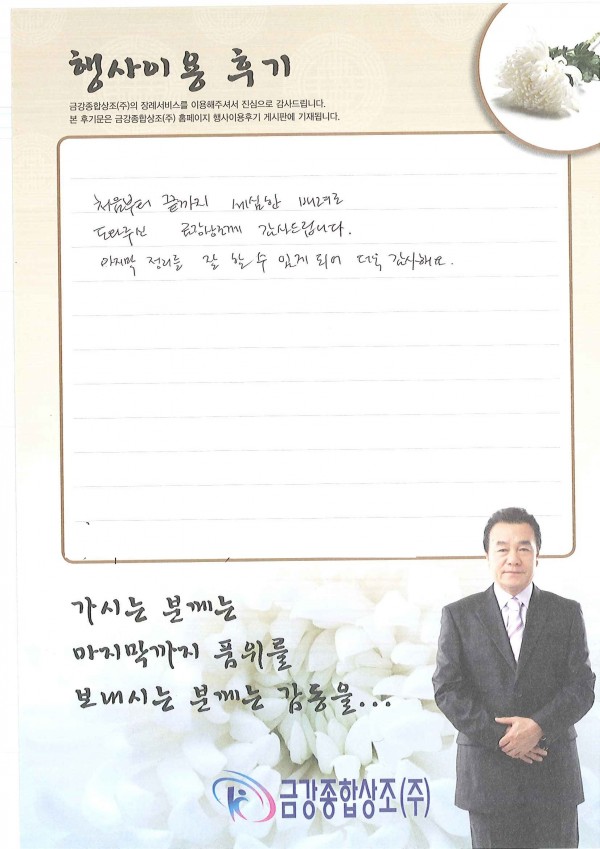 행사이용 후기
금강종합상조(주)의 장례서비스를 이용해주셔서 진심으로 감사드립니다.
본 후기문은 금강종합상조(주) 홈페이지 행사이용후기 게시판에 기재됩니다.
처음부터 끝까지 세심한 배려로
도와주신 금강상조께 감사드립니다.
마지막 정리를 잘 할 수 있게 되어 더욱 감사해요.
가시는 분께는
마지막까지 품위를
보내시는 분께는 감동을...
금강종합상조(주)